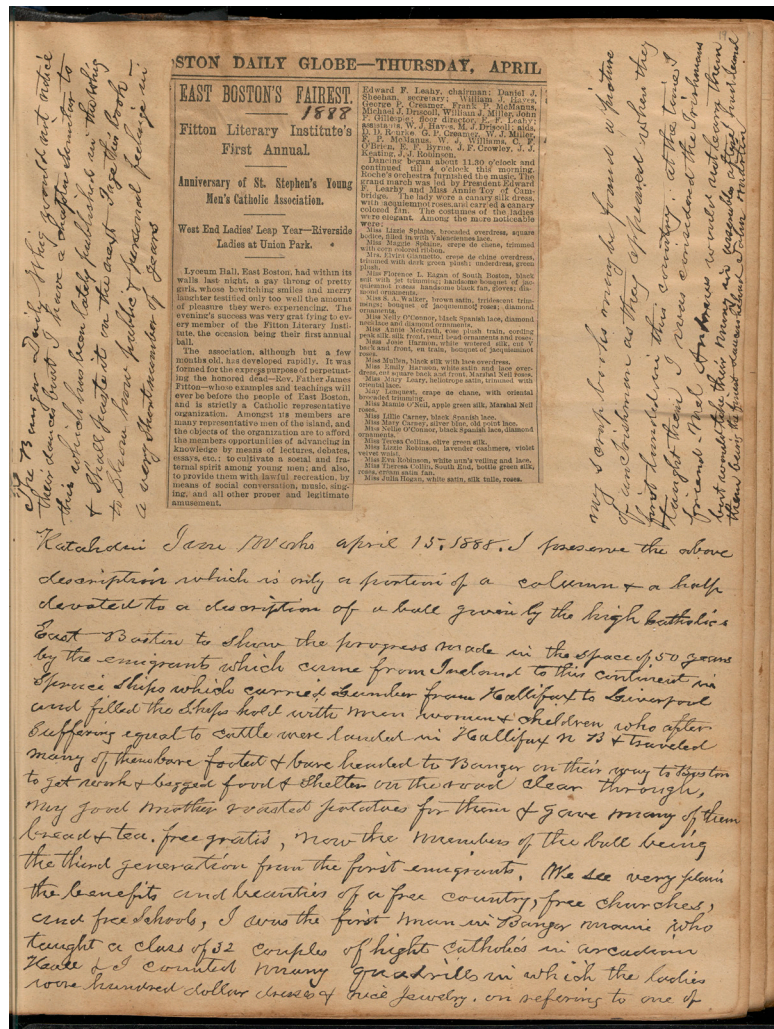 STON DAILY GLOBE—THURSDAY, APRIL
EAST BOSTON'S FAIREST.
1888
Fitton Literary Institute's
First Annual.
Anniversary of St. Stephen's Young
Men's Catholic Association.
West End Ladies' Leap Year—Riverside
Ladies at Union Park.
Lyceum Ball, East Boston, had within its
walls last night, a gay throng of pretty
girls, whose bewitching smiles and merry
laughter testified only too well the amount
of pleasure they were experiencing. The
evening's success was very gratifying to ev-
ery member of the Fitton Literary Insti-
tute, the occasion being their first annual
ball.
The association, although but a few
months old, has developed rapidly. It was
formed for the express purpose of perpetuat-
ing the honored dead—Rev. Father James
Fitton—whose examples and teachings will
ever be before the people of East Boston,
and is strictly a Catholic representative
organization. Amongst its members are
many representative men of the island, and
the objects of the organization are to afford
the members opportunities of advancing in
knowledge by means of lectures, debates,
essays, etc.; to cultivate a social and fra-
ternal spirit among young men; and also,
to provide them with lawful recreation, by
means of social conversation, music, sing-
ing, and all other proper and legitimate
amusement.
Edward F. Leahy, chairman; Daniel J.
Sheehan, secretary; William J. Hayes,
George P. Creamer, Frank P. McManus,
Michael J. Driscoll, William J. Miller, John
F. Gillespie; floor director, E. F. Leahy;
assistants, W. J. Hayes, M. J. Driscoll; aids,
D. D. Rourke, G. P. Creamer, W. J. Miller,
F. P. McManus, W. J. Williams, C. F.
O'Brien, E. F. Byrne, J. F. Crowley, J. J.
Keating, J. J. Robinson.
Dancing began about 11.30 o'clock and
continued till 4 o'clock this morning.
Roche's orchestra furnished the music. The
grand march was led by President Edward
F. Leahy and Miss Annie Toy of Cam-
bridge. The lady wore a canary silk dress,
with jacqueminot roses, and carried a canary
colored fan. The costumes of the ladies
were elegant. Among the more noticeable
were:
Miss Lizzie Splaine, brocaded overdress, square
bodice, filled in with Valenciennes lace.
Miss Maggie Splaine, crepe de chene, trimmed
with corn colored ribbon.
Mrs. Elvira Giannotto, crepe de chine overdress,
trimmed with dark green plush; underdress, green
plush.
Miss Florence L. Eagan of South Boston, black
suit with jet trimming; handsome bouquet of jac-
queminot roses; handsome black fan, gloves; dia-
mond ornaments.
Miss S. A. Walker, brown satin, irridescent trim-
mings; bouquet of Jacqueminot roses; diamond
ornaments.
Miss Nelly O'Connor, black Spanish lace, diamond
necklace and diamond ornaments.
Miss Annie McGrath, rose plush train, cording
peak silk, silk front, pearl bead ornaments and roses.
Miss Josie Harmon, white watered silk, cut V
back and front, en train, bouquet of jacqueminot
roses.
Miss Mullen, black silk with lace overdress.
Miss Emily Harmon, white satin and lace over-
dress, cut square back and front, Marshal Neil roses.
Miss Mary Leary, heliotrope satin, trimmed with
oriental lace.
crape de chane, with oriental
beaded trimming.
Miss Mamie O'Neil, apple green silk, Marshal Neil
roses.
Miss Lillie Carney, black Spanish lace.
Miss Mary Carney, silver blue, old point lace.
Miss Nellie O'Connor, black Spanish lace, diamond
ornaments.
Miss Teresa Collins, olive green silk.
Miss Lizzie Robinson, lavender cashmere, violet
velvet waist.
Miss Eva Robinson, white nun's veiling and lace.
Miss Theresa Collin, South End, bottle green silk,
roses, cream satin fan.
Miss Julia Hogan, white satin, silk tulle, roses.
The Bangor Daily Whig would not notice
their dances but I have a chapter devoted to
this which has been lately published in the Whig
& Shall paste it on the next page this book
to Show how public & personal feelings in
a very short number of years
my scrap books may be found a picture
of an Irishman as they appeared when they
first landed in this country. at the time I
taught them I was considered the Irishmans
friend Mad Andrews would not learn them
but would take their money
them being the finest dancers
Katahdin Iron Works april 15, 1888. I preserve the above
description which is only a portion of a column & a half
devoted to a description of a ball given by the high Catholics
East Boston to show the progress made in the space of 50 years
by the emigrants which came from Ireland to this continent in
Spruce Ships which carried Lumber from Hallifax to Liverpool
and filled the Ships hold with men women & children who after
Suffering equal to cattle were landed in Hallifax N B & traveled
many of them bare footed & bare headed to Bangor on their way to Boston
to get work & begged food & shelter on the road clear through,
my good mother roasted potatoes for them & gave many of them
bread & tea. free gratis, now the members of the ball being
the third generation from the first emigrants. We see very plain
the benefits and beauties of a free country, free churches,
and free Schools, I was the first man in Bangor maine who
taught a class of 32 couples of hight catholics in arcadian
Hall & I counted many quadrills in which the ladies
wore hundred dollar dresses & nice Jewelry. on refering to one of